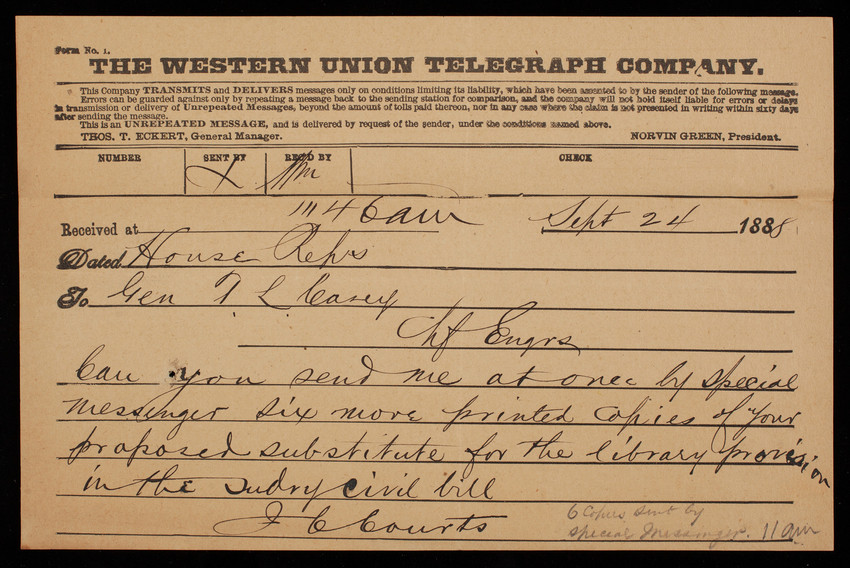 Form No. 1.
THE WESTERN UNION TELEGRAPH COMPANY.
This Company TRANSMITS and DELIVERS messages only on conditions limiting its liability, which have been assented to by the sender of the following message.
Errors can be guarded against only by repeating a message back to the sending station for comparison, and the company will not hold itself liable for errors or delays
in transmission or delivery of Unrepeated Messages, beyond the amount of tolls paid thereon, nor in any case where the claim is not presented in writing within sixty days
after sending the message.
This is an UNREPEATED MESSAGE, and is delivered by request of the sender, under the conditions named above.
THOS. T. ECKERT, General Manager. NORVIN GREEN, President.
NUMBER SENT BY REC'D BY CHECK
Received at 1146am Sept 24 1888
Dated House Reps
To Gen T L Casey
Chf Engrs
Can you send me at once by special
messenger six more printed copies of your
proposed substitute for the library provision
in the sudry civil bill
J C Courts
6 Copies sent by
special Messenger. 11 am